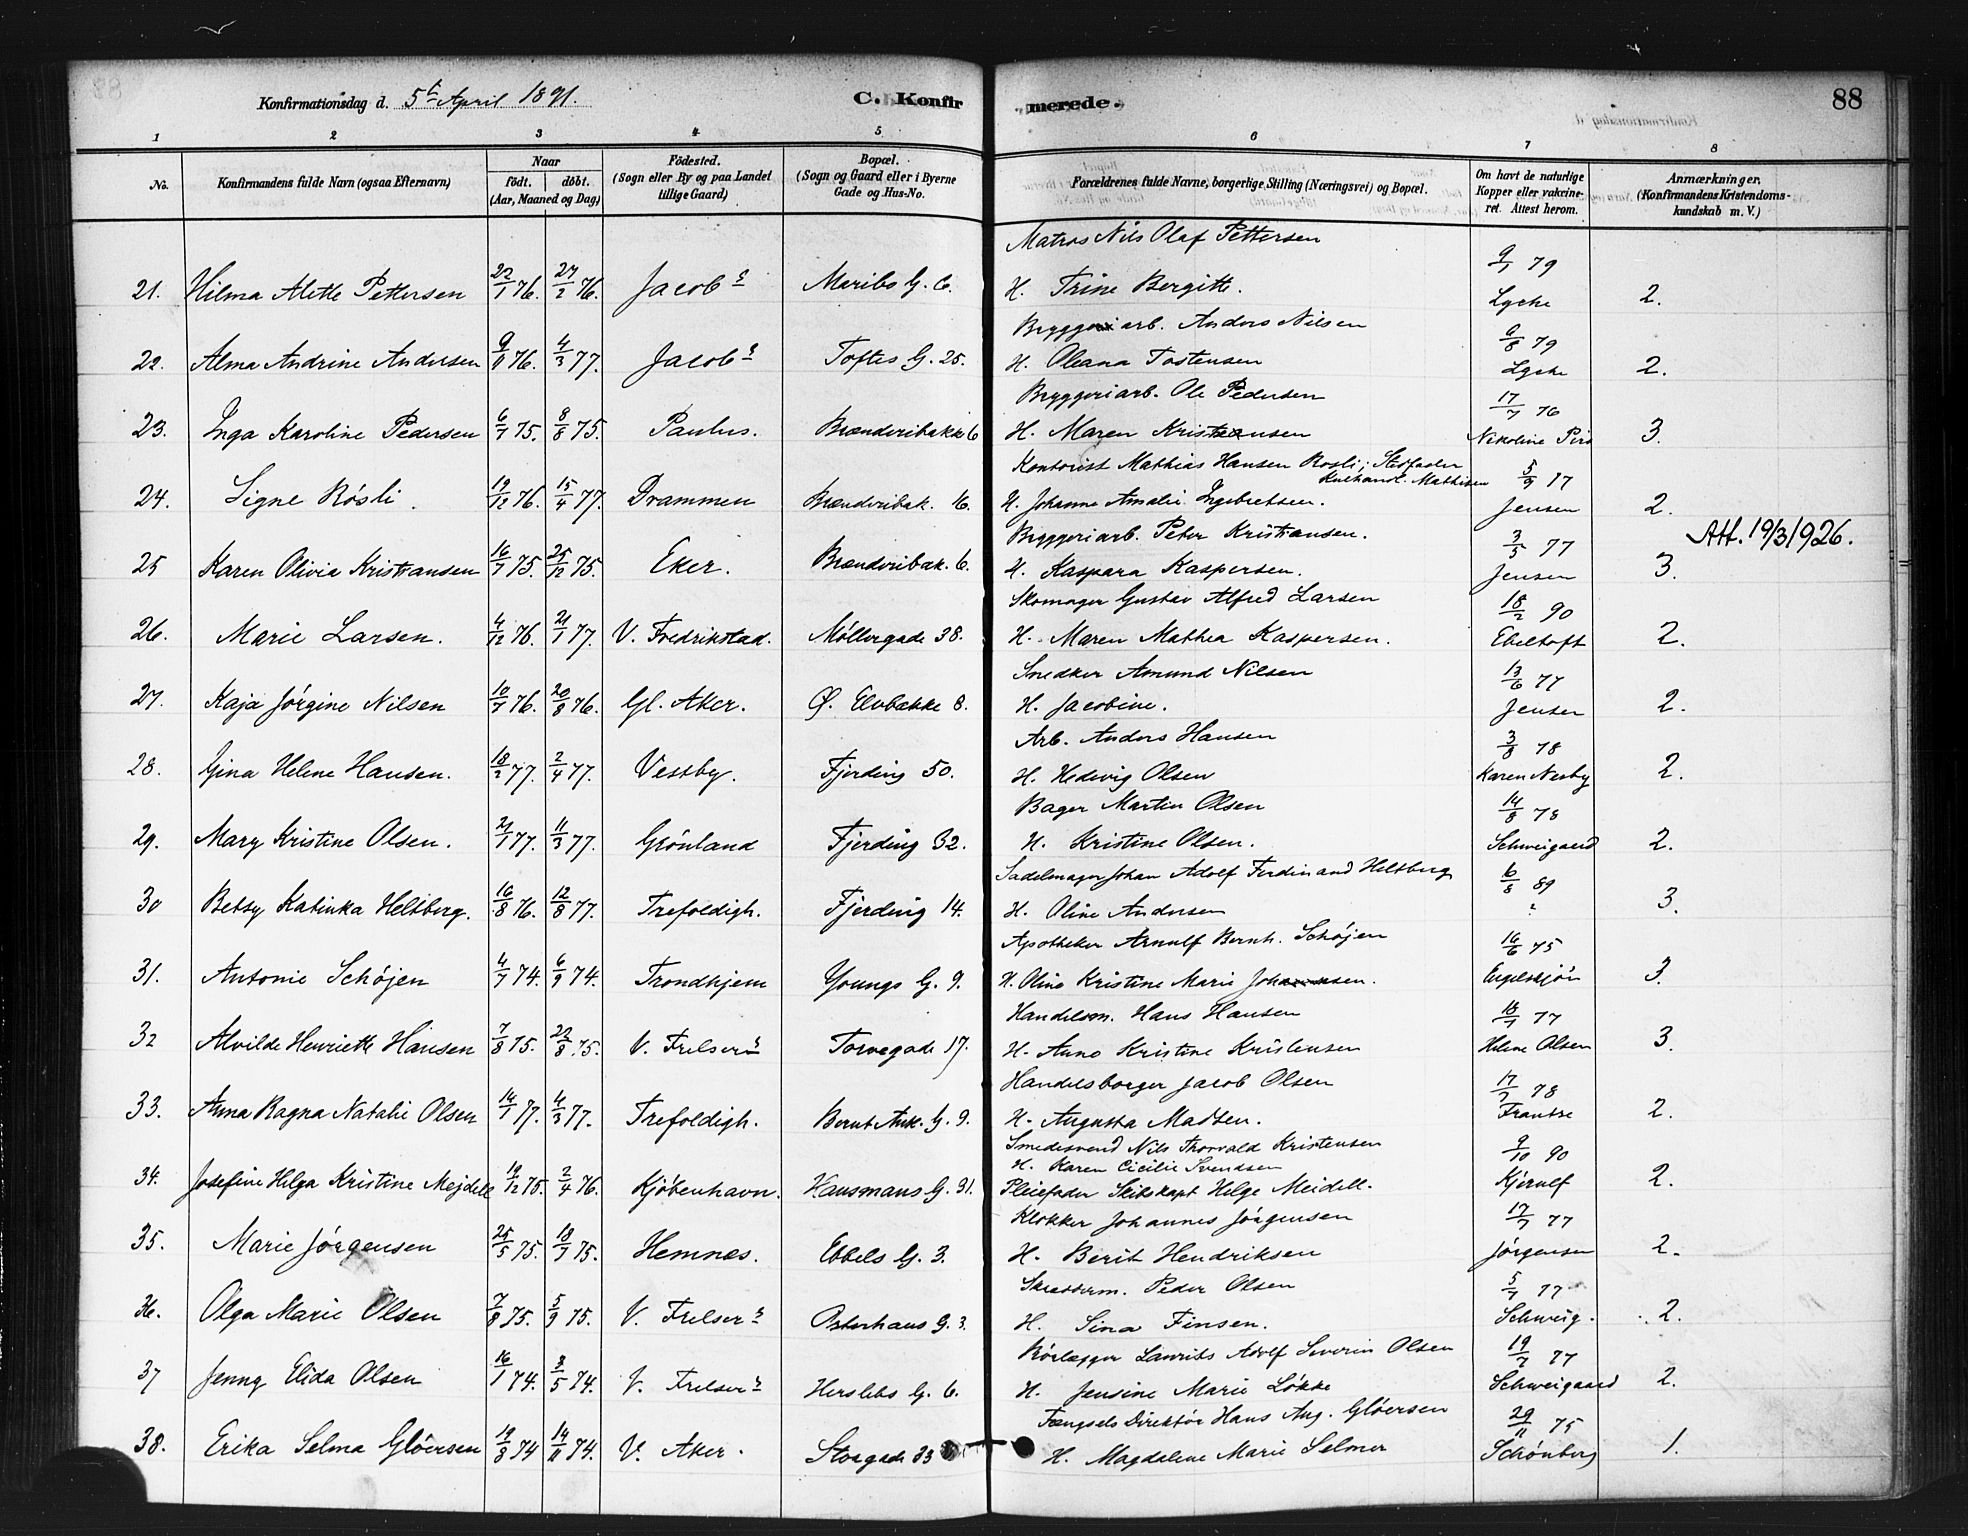 Konfirmationsdag d. 5te April 1891.
C. Konfirmerede.
88
1 2 3 4 5 6 7 8
No.
Konfirmandens fulde Navn (ogsaa Efternavn)
Naar
födt. döbt.
(Aar, Maaned og Dag)
Födested.
(Sogn eller By og paa Landet
tillige Gaard)
Bopæl.
(Sogn og Gaard eller i Byerne
Gade og Hus-No.
Forældrenes fulde Navne, borgerlige Stilling (Næringsvei) og Bopæl.
Om havt de naturlige
Kopper eller vakcine-
ret. Attest herom.
Anmærkninger.
(Konfirmandens Kristendoms-
kundskab m. V.)
Matros Nils Olaf Pettersen
21. Hilma Alette Pettersen 22/1 76. 27/2 76. Jacobs Maribo G. 6. H. Trine Bergitte. 9/1 79 Lycke 2.
Bryggeriarb. Anders Nilsen
22. Alma Andrine Andersen 9/9 76. 4/3 77. Jacobs Toftes G. 25. H. Oleana Tostensen 9/8 79 Lycke 2.
Bryggeriarb. Ole Pedersen
23. Inga Karoline Pedersen 6/7 75. 8/8 75. Paulus. Brænderibakke 6 H. Maren Kristiansen 17/7 76 Nikoline 3.
Kontorist Mathias Hansen Rosli; Stedfader
Mathisen
24. Signe Rösli. 19/12 76. 15/4 77. Drammen Brænderibak. 16. H. Johanne Amalie Ingebretsen. 5/9 77 Jensen 2.
Bryggeriarb. Peter Kristiansen.
Att. 19/3 1926.
25 Karen Olivia Kristiansen 16/7 75. 25/12 75. Eker. Brænderibak. 6. H. Kaspara Kaspersen. 3/5 77 Jensen 3.
Skomager Gustav Alfred Larsen
26. Marie Larsen. 4/12 76. 21/1 77. V. Fredrikstad. Möllergade 38. H. Maren Mathea Kaspersen. 18/2 90 Ebeltoft 2.
Snedker Amund Nilsen
27. Kaja Jörgine Nilsen 10/7 76. 20/8 76. Gl. Aker. Ø. Elvebakke 8. H. Jacobine. 13/6 77 Jensen 2.
Arb. Anders Hansen
28. Gina Helene Hansen. 18/2 77. 2/4 77. Vestby. Fjerding 50. H. Hedevig Olsen 3/8 78 Karen Nesby 2.
Bager Martin Olsen
29. Mary Kristine Olsen. 21/1 77. 11/3 77. Grönland Fjerding 32. H. Kristine Olsen. 14/8 78 Schweigaard 2.
Sadelmager Johan Adolf Ferdinand Heltberg
30 Betsy Katinka Heltberg. 16/8 76. 12/8 77. Trefoldigh. Fjerding 14. H. Oline Andersen 6/8 89 ? 3.
Apotheker Arnulf Bernh. Schöjen
31. Antonie Schöjen 4/7 74. 6/9 74. Trondhjem Youngs G. 9. H. Oline Kristine Marie Johannesen. 16/6 75 Engelskjön 3.
Handelsm. Hans Hansen
32 Alvilde Henriette Hansen 7/8 75. 22/8 75. V. Frelsers Torvegade 17. H. Anne Kristine Kristensen 18/7 77 Helene Olsen 3.
Handelsborger Jacob Olsen
33. Anna Ragna Natalie Olsen 14/1 77. 4/3 77. Trefoldigh. Bernt Ank. G. 9. H. Augusta Madsen. 17/7 78 Frantze 2.
Smedesvend Nils Thorvald Kristensen
H. Karen Cicilie Svendsen
34. Josefine Helga Kristine Mejdell 19/12 75. 2/4 76. Kjöbenhavn. Hausmans G. 31. Pleiefader Skibskapt Helge Meidell. 9/10 90 Kjerulf 2.
Klokker Johannes Jörgensen
35. Marie Jörgensen 25/5 75. 18/7 75. Hemnæs. Ebbels G. 3. H. Berit Hendriksen 17/7 77 Jörgensen 2.
Skræderm. Peder Olsen
36. Olga Marie Olsen 7/8 75. 5/9 75. V. Frelsers Osterhaus G. 3. H. Sina Finsen. 5/7 77 Schweig. 2.
Rörlægger Laurits Adolf Severin Olsen
37 Jenny Elida Olsen 16/1 74. 3/5 74. V. Frelsers Herslebs G. 6. H. Jensine Marie Lökke 19/7 77 Schweigaard 2.
Fængsels Direktör Hans Aug. Glöersen
38. Erika Selma Glöersen 19/8 74 14/11 74. V. Aker. Storgade 33 H. Magdalene Marie Selmer 29/11 75 Schönberg 1.